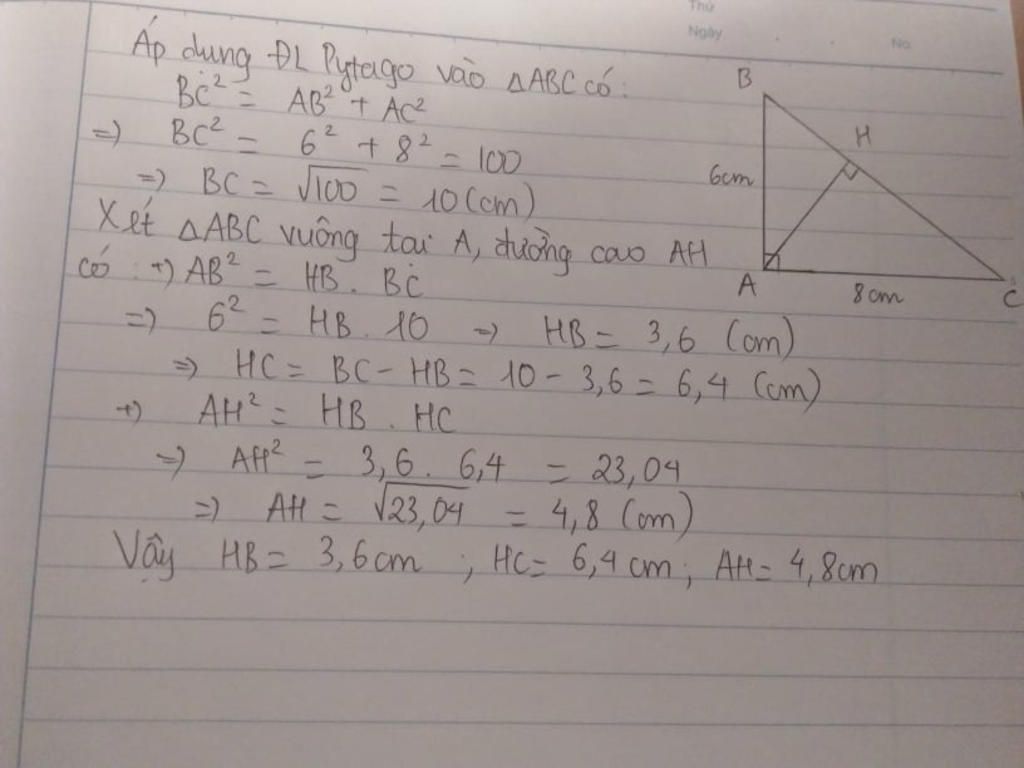 Thứ
Ngày . . No
Áp dung ĐL Pytago vào △ABC có:
BC² = AB² + AC²
=) BC² = 6² + 8² = 100
=) BC = √100 = 10 (cm)
Xét △ABC vuông tai A, đường cao AH
có : +) AB² = HB . BC
=) 6² = HB . 10 =) HB = 3,6 (cm)
=) HC = BC - HB = 10 - 3,6 = 6,4 (cm)
+) AH² = HB . HC
=) AH² = 3,6 . 6,4 = 23,04
=) AH = √23,04 = 4,8 (cm)
Vậy HB = 3,6cm ; HC = 6,4 cm ; AH = 4,8cm
B
H
6cm
A
8cm
C